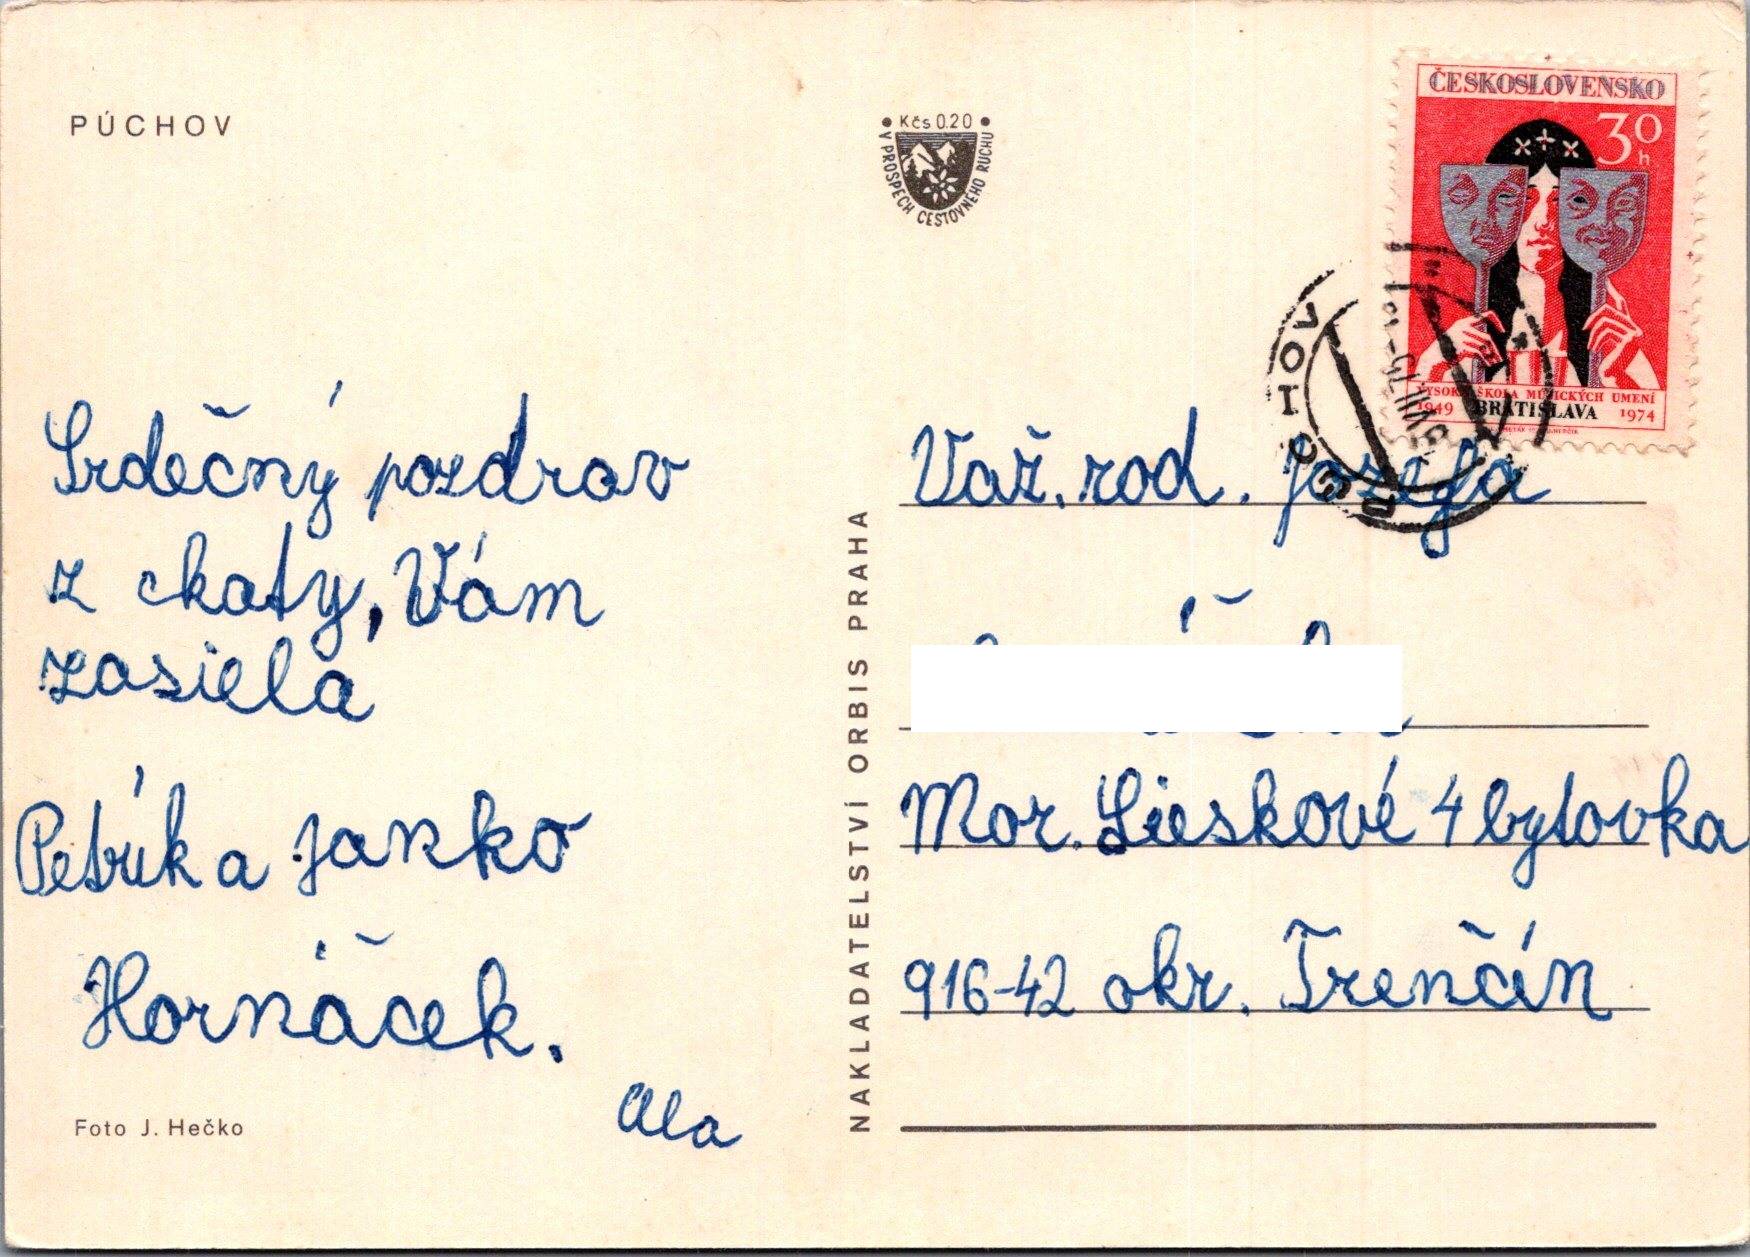 PÚCHOV
• Kčs 0.20 •
V PROSPECH CESTOVNÉHO RUCHU
ČESKOSLOVENSKO
30
h
VYSOKÁ ŠKOLA MÚZICKÝCH UMENÍ
1949 BRATISLAVA 1974
Srdečný pozdrav
z chaty, Vám
zasiela
Petrík a Janko
Horňáček.
Ala
Foto J. Hečko
NAKLADATELSTVÍ ORBIS PRAHA
Važ. rod. Jozefa
Mor. Lieskové 4 bytovka
916-42 okr. Trenčín